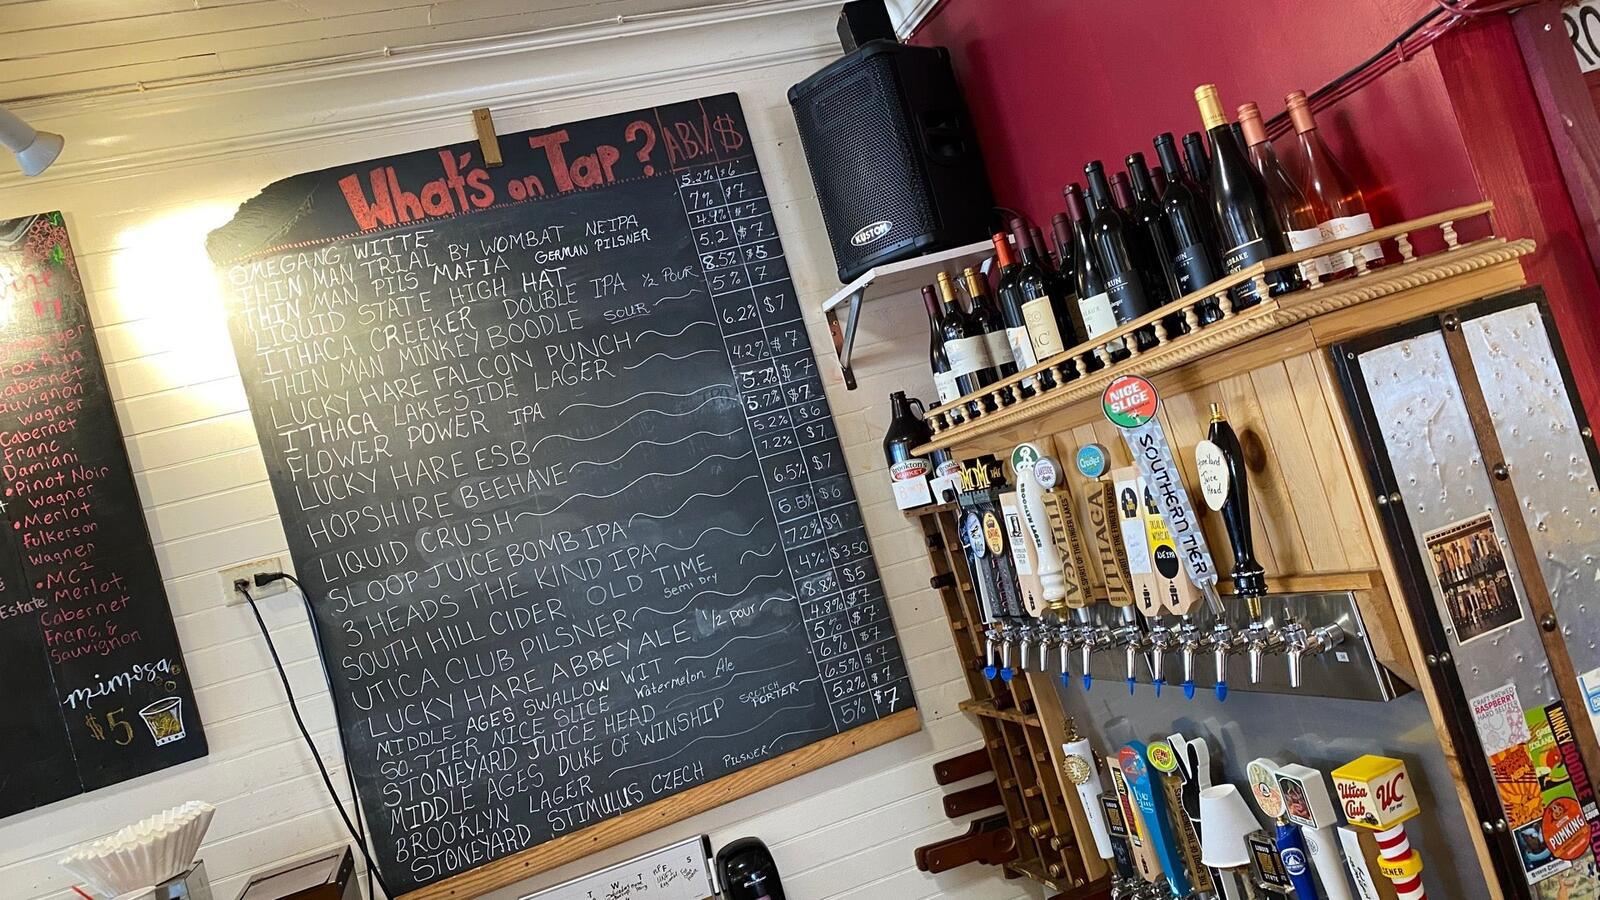 What's on Tap? A.B.V. $
OMEGANG WITTE 5.2% $6
THIN MAN TRIAL BY WOMBAT NEIPA 7% $7
THIN MAN PILS MAFIA GERMAN PILSNER 4.9% $7
LIQUID STATE HIGH HAT 5.2 $7
ITHACA CREEKER DOUBLE IPA 1/2 POUR 8.5% $5
THIN MAN MINKEY BOODLE SOUR 5% 7
LUCKY HARE FALCON PUNCH 6.2% $7
ITHACA LAKESIDE LAGER 4.2% $7
FLOWER POWER IPA
LUCKY HARE ESB
HOPSHIRE BEEHAVE
LIQUID CRUSH
SLOOP JUICE BOMB IPA
3 HEADS THE KIND IPA
SOUTH HILL CIDER OLD TIME SEMI DRY
UTICA CLUB PILSNER
LUCKY HARE ABBEY ALE 1/2 POUR
MIDDLE AGES SWALLOW WIT
SO. TIER NICE SLICE Watermelon Ale
STONEYARD JUICE HEAD
MIDDLE AGES DUKE OF WINSHIP SCOTCH PORTER
BROOKLYN LAGER
STONEYARD STIMULUS CZECH PILSNER
5.2% $7
5.7% $7
5.2% $6
7.2% $7
6.5% $7
6.8% $6
7.2% $9
4% $3.50
8.8% $5
4.8% $7
5% $7
6.% $7
6.5% $7
5.2% $7
5% $7
Fox Run
Cabernet
Sauvignon
Wagner
Cabernet
Franc
Damiani
•Pinot Noir
Wagner
•Merlot
Fulkerson
Wagner
•MC²
Estate
•Merlot,
Cabernet
Franc, &
Sauvignon
mimosa
$5
KUSTOM
NICE SLICE
SOUTHERN TIER
Stoneyard
Juice
Head
BROOKLYN LAGER
LAKESIDE
ITHACA
THE SPIRIT OF THE FINGER LAKES
ITHACA
Brookton's
MARKET
Utica
Club
UC
CRAFT BREWED
RASPBERRY
HARD SELTZER
MINKEY BOODLE
PUMKING